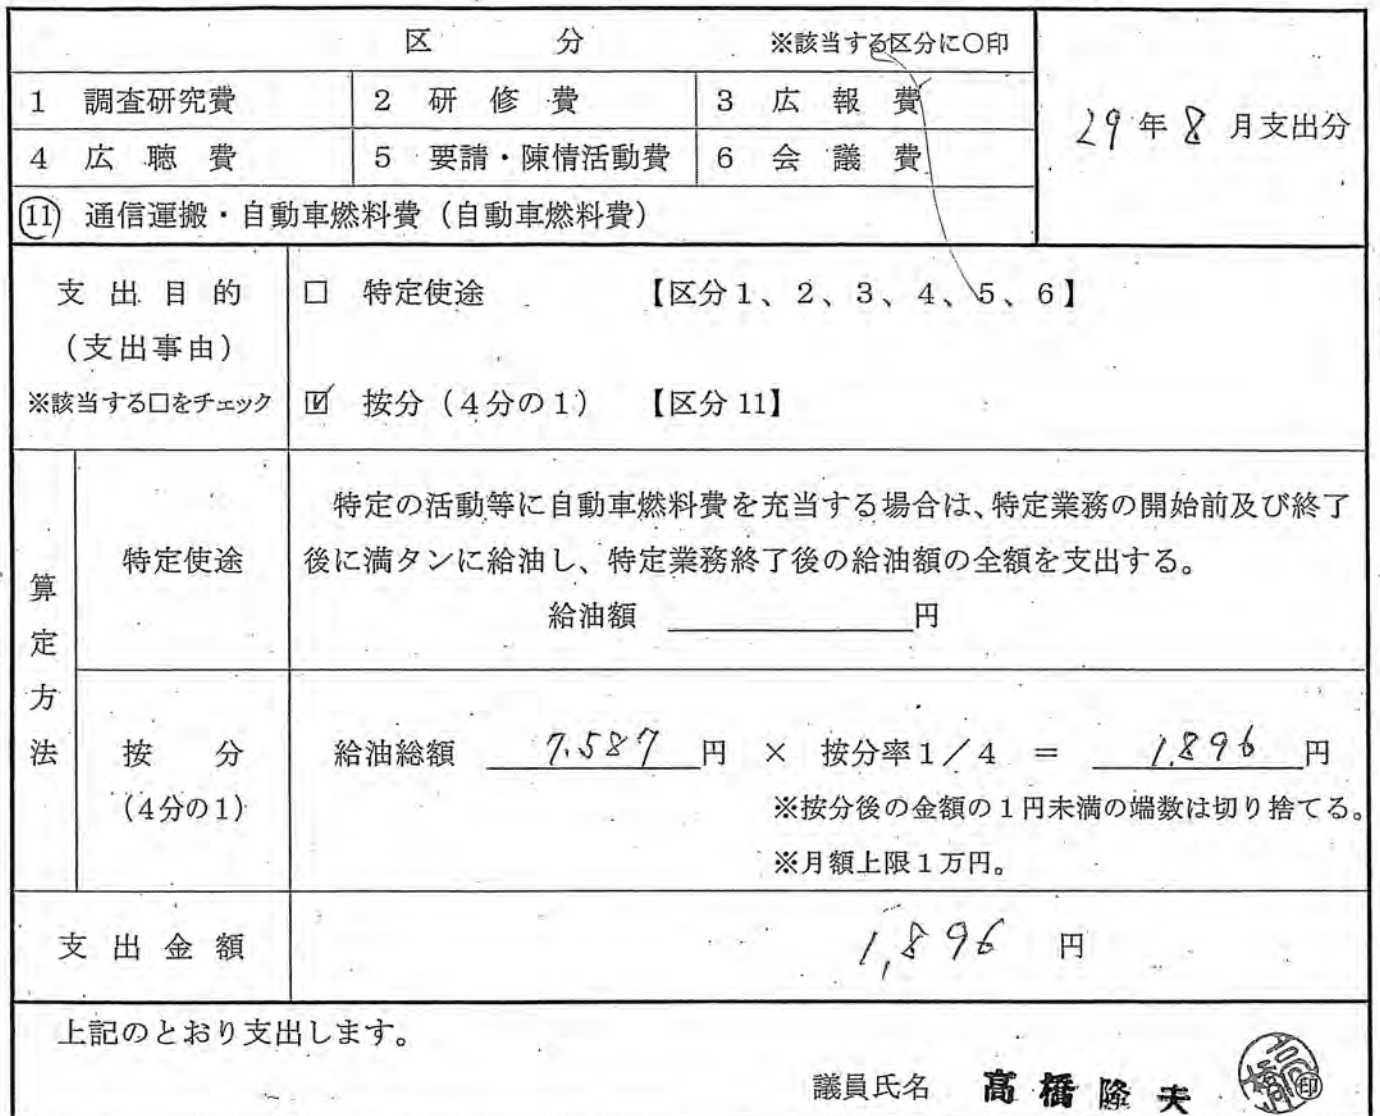 区 分 ※該当する区分に○印
1 調査研究費 2 研修費 3 広報費
29年8月支出分
4 広聴費 5 要請・陳情活動費 6 会議費
⑪ 通信運搬・自動車燃料費(自動車燃料費)
支出目的
(支出事由)
※該当する□をチェック
□ 特定使途 【区分1、2、3、4、5、6】
☑ 按分(4分の1) 【区分11】
算定方法
特定使途
特定の活動等に自動車燃料費を充当する場合は、特定業務の開始前及び終了
後に満タンに給油し、特定業務終了後の給油額の全額を支出する。
給油額 円
按分
(4分の1)
給油総額 7,587円 × 按分率1/4 = 1,896円
※按分後の金額の1円未満の端数は切り捨てる。
※月額上限1万円。
支出金額 1,896 円
上記のとおり支出します。
議員氏名 髙橋隆夫 印